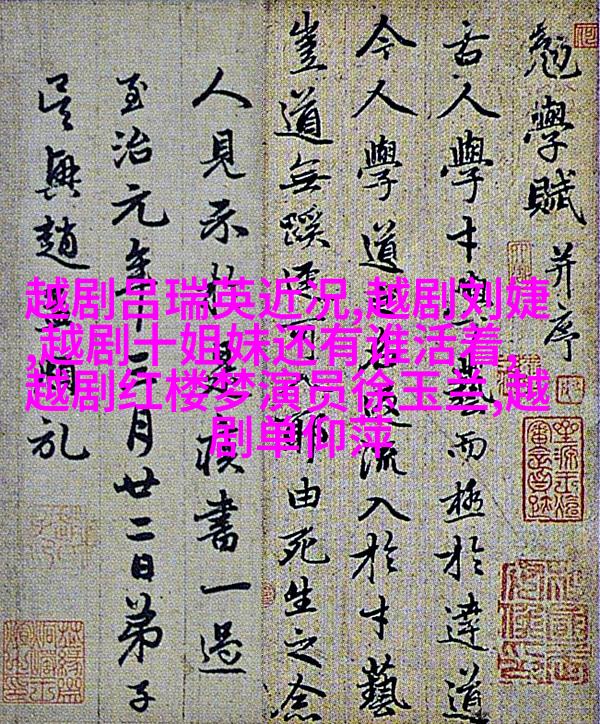 越剧吕瑞英近况,越剧刘婕
,越剧十姐妹还有谁活着,
越剧红楼梦演员徐玉兰,越
剧单仰萍
勉學賦并序
古人學才藝而極於達道
今人學道流入於才藝
豈道無蹊可入耶由死生之念
人見示模書一過
至治元年月廿二日弟子
吳興趙孟頫